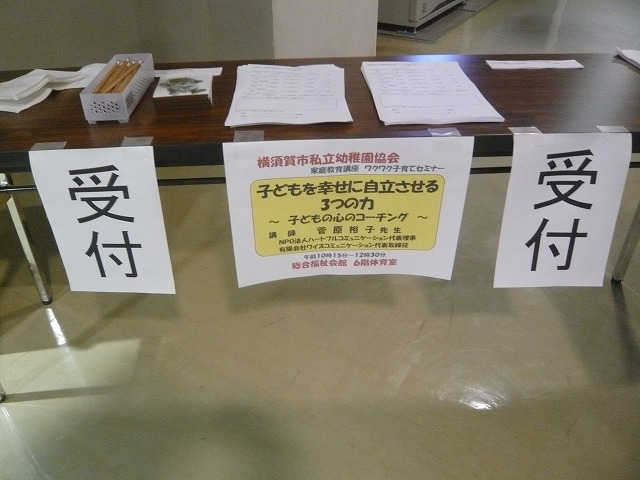 受付
横須賀市私立幼稚園協会
家庭教育講座 ワクワク子育てセミナー
子どもを幸せに自立させる
3つの力
～ 子どもの心のコーチング ～
講師 菅原裕子先生
NPO法人ハートフルコミュニケーション代表理事
有限会社ワイズコミュニケーション代表取締役
午前10時15分～12時30分
総合福祉会館 6階体育室
受付